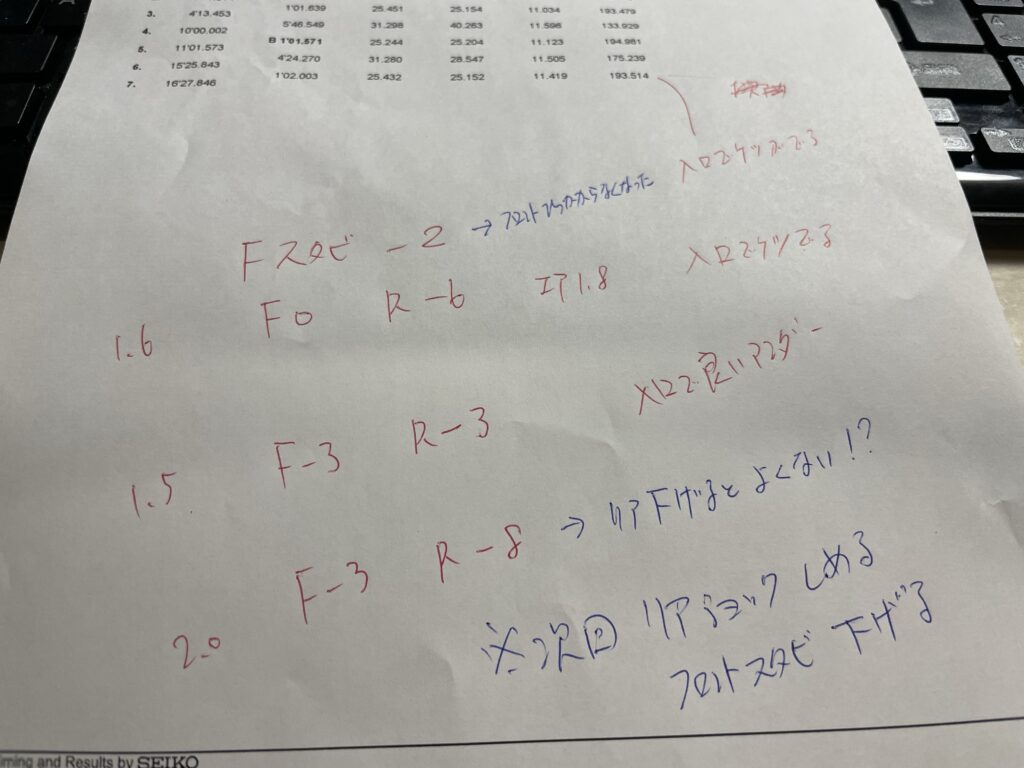 3. 4'13.453 1'01.639 25.451 25.154 11.034 193.479
4. 10'00.002 5'46.549 31.298 40.263 11.596 133.929
5. 11'01.573 B 1'01.571 25.244 25.204 11.123 194.981
6. 15'25.843 4'24.270 31.280 28.547 11.505 175.239
7. 16'27.846 1'02.003 25.432 25.152 11.419 193.514
Fスタビ -2 → フロントひっかからなくなった 入口でケツでる
1.6 F0 R-6 エア1.8 入口でケツでる
1.5 F-3 R-3 入口で良いアンダー
2.0 F-3 R-8 → リア下げるとよくない!?
※次回 リアショックしめる
フロントスタビ 下げる
iming and Results by SEIKO